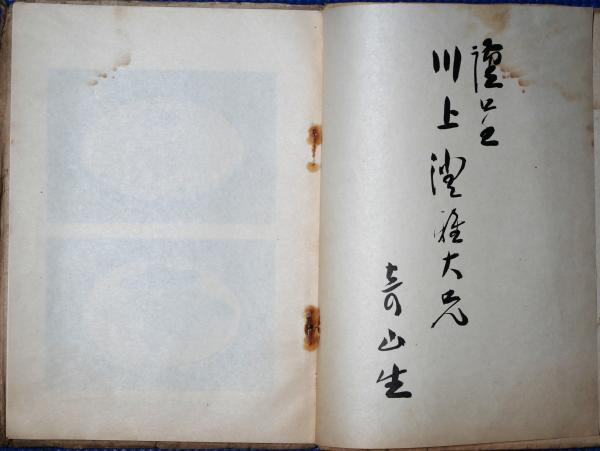 謹呈
川上澄雅大兄
奇山生